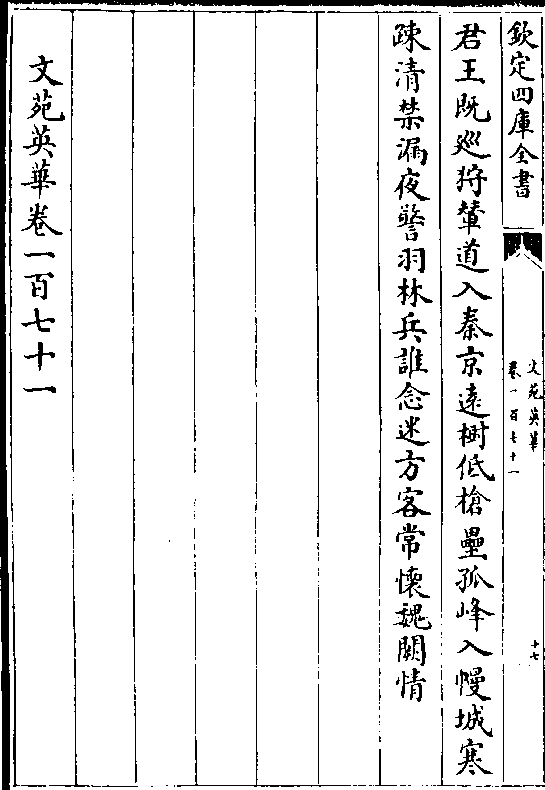 欽定四庫全書
文苑英華
卷一百七十一
十七
君王既廵狩輦道入秦京逺樹低槍壘孤峰入幔城寒
疎清禁漏夜警羽林兵誰念迷方客常懷魏闕情
文苑英華卷一百七十一